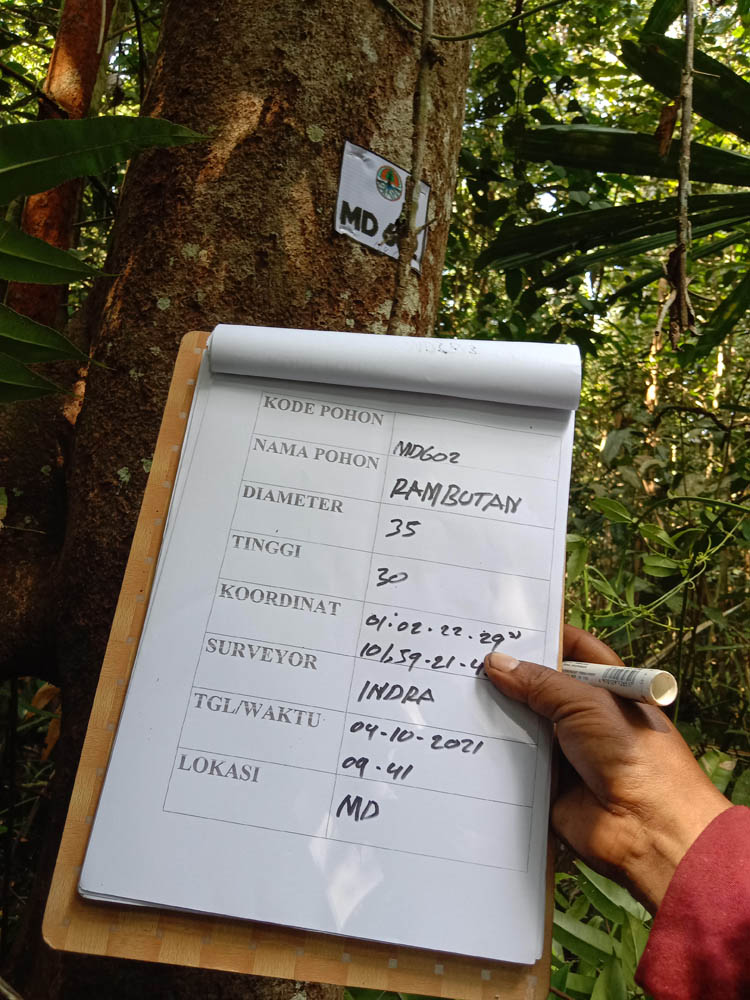 MD
KODE POHON
MD602
NAMA POHON
RAMBUTAN
DIAMETER
35
TINGGI
30
KOORDINAT
01.02.22.29"
101.59.21.4
SURVEYOR
INDRA
TGL/WAKTU
04-10-2021
09.41
LOKASI
MD